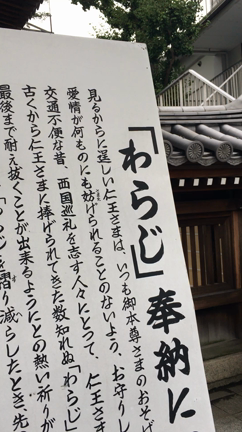 「わらじ」奉納に
見るからに逞しい仁王さまは、いつも御本尊さまのおそば
愛情が何ものにも妨げられることのないよう、お守りし
交通不便な昔、西国巡礼を志す人々にとって、仁王さま
古くから仁王さまに捧げられてきた数知れぬ「わらじ」
最後まで耐え抜くことが出来るようにとの熱い祈りが